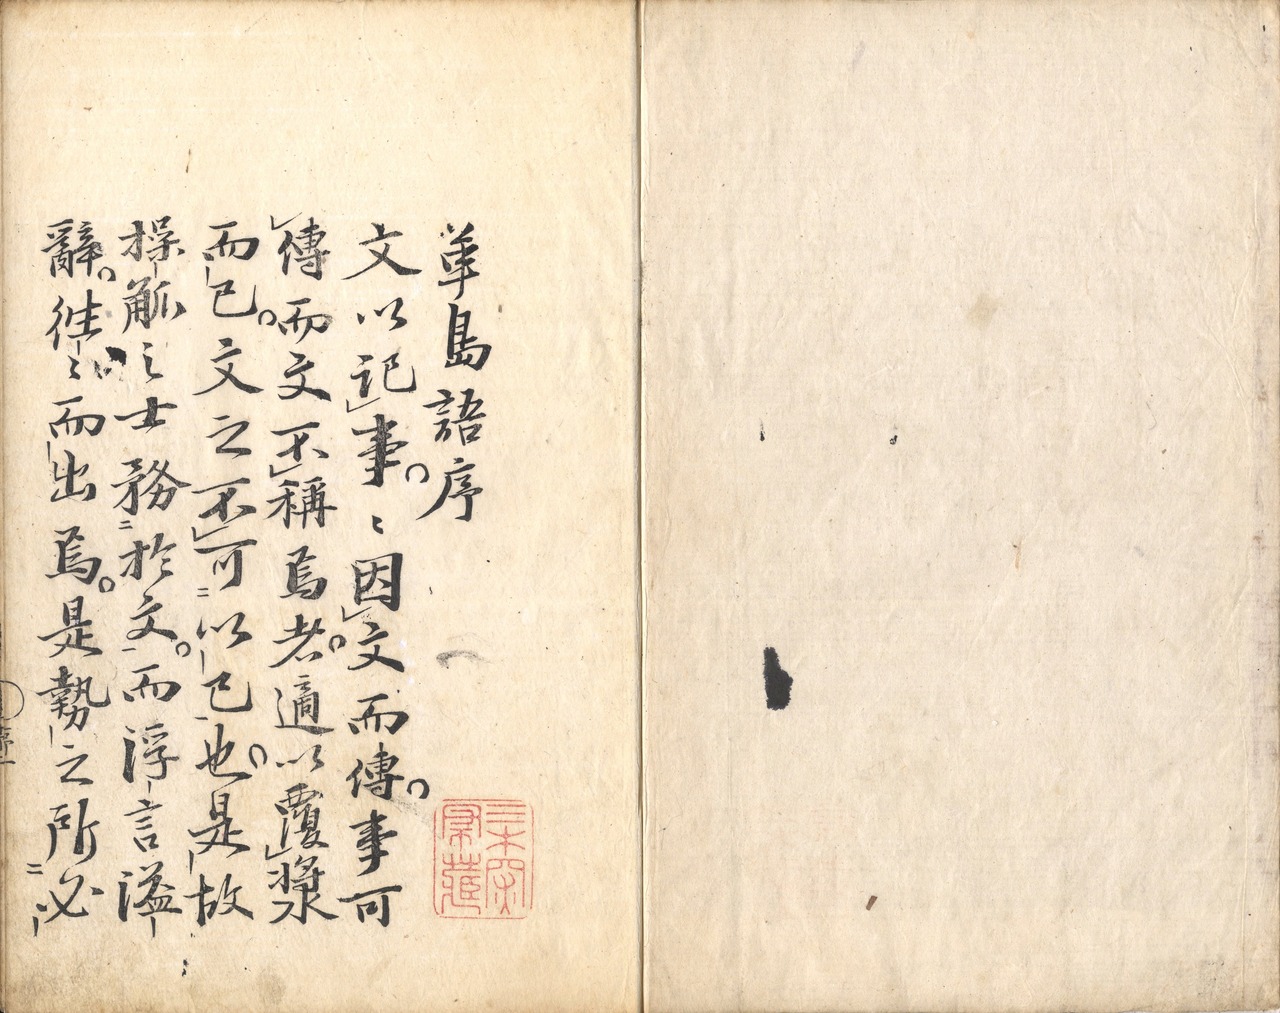 華島語序
文以記事。〻因文而傳。事可
傳而文不稱焉者。適以覆漿
而已。文之不可以已也。是故
操觚之士務於文。而浮言溢
辭。往〻而出焉。是勢之所必
序一